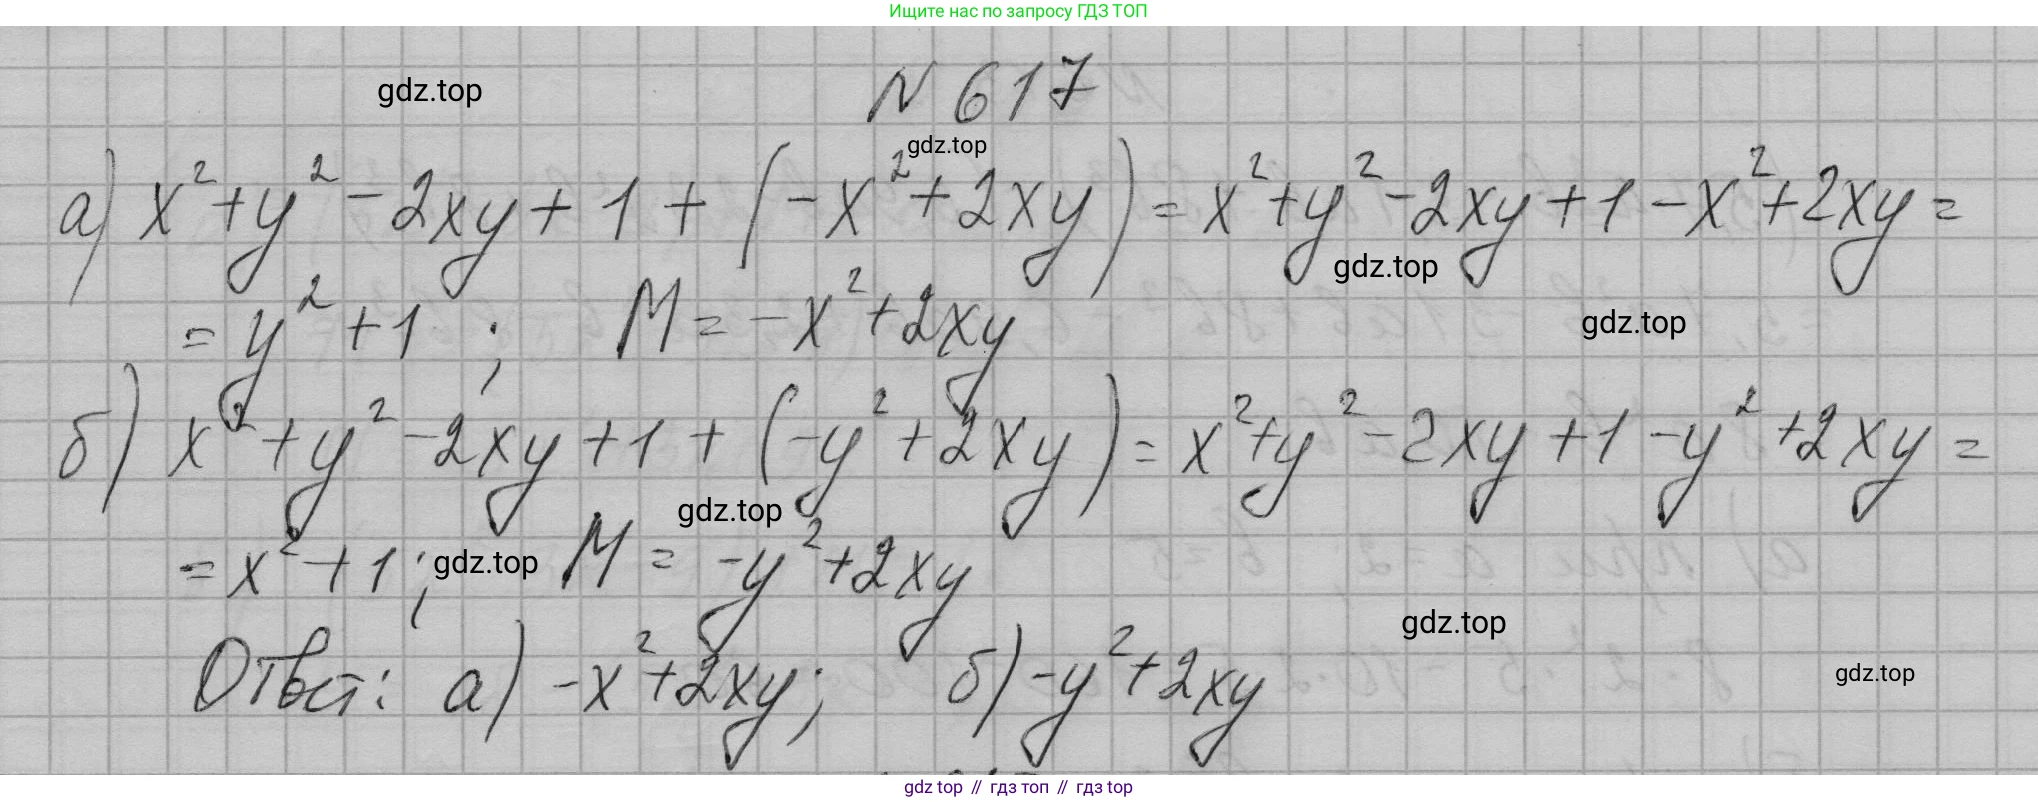 Ищите нас по запросу ГДЗ ТОП
N 617
gdz.top
gdz.top
а) x² + y² - 2xy + 1 + (-x² + 2xy) = x² + y² - 2xy + 1 - x² + 2xy =
gdz.top
= y² + 1 ; M = -x² + 2xy
gdz.top
б) x² + y² - 2xy + 1 + (-y² + 2xy) = x² + y² - 2xy + 1 - y² + 2xy =
gdz.top
= x² + 1 ; M = -y² + 2xy
gdz.top
gdz.top
Ответ: а) -x² + 2xy ; б) -y² + 2xy
gdz.top
gdz top // гдз топ // гдз top